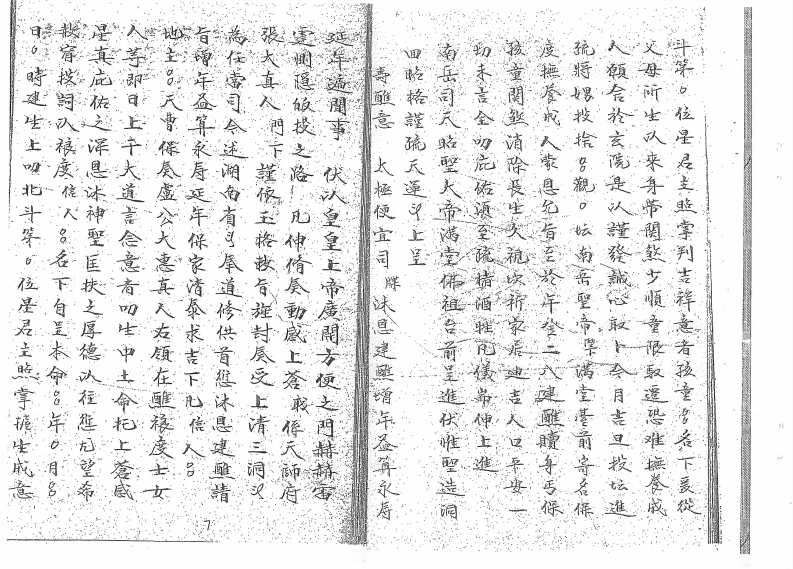 斗第〇位星君主照掌判吉祥意者孩童〇名下爰從
父母所生以來身帶關煞少順童限取還恐难撫養成
人願舍於玄院是以謹發誠心取卜今月吉旦投坛進
疏將娚投捨〇觀〇坛南岳聖帝暨滿堂臺前寄名保
度撫養成人蒙恩允旨至於年登二八建醮贖身丐保
孩童關煞消除長生久視次祈家居迪吉人口平安一
切未言全叨庇佑須至疏楮酒牲凡儀耑伸上進
南岳司天昭聖大帝滿堂佛祖台前呈進伏惟聖造洞
回昭格謹疏天運 上呈
壽醮意 太極便宜司 牒 沐恩建醮增年益算永壽
延年遍聞事 伏以皇皇上帝廣開方便之門赫赫雷
霆惻隱皈投之路 凡伸脩奏動感上蒼 职係天師府
張大真人 門下 謹依玉格敕旨誰封奏受上清三洞
為任當司今述湖南省 奉道修供首您沐恩建醮請
旨增年益算永壽延年保家清泰求吉下凡信人〇
地主〇〇天曹保奏盧公大惠真人右領在醮禳度士女
人等即日上干大道言念意者叨生中土命托上蒼感
星真庇佑之深恩沐神聖匡扶之厚德以往愆尤望希
赦宥投詞以禳度信人〇名下自呈本命〇年〇月〇
日〇時建生上叨北斗第〇位星君主照掌攄生成意
7